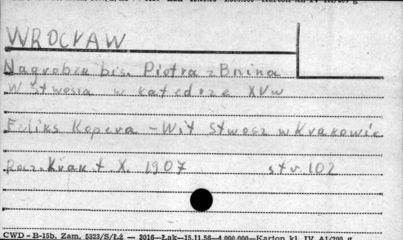 WROCŁAW
Nagrobek bis. Piotra z Bnina
W Stwosza w katedrze XVw
Feliks Kopera - Wit Stwosz w Krakowie
Rocz. Krak. t X. 1907 str. 102
CWD - B-15b. Zam. 5323/S/Łż — 3016—Łak—15.11.56—4.000.000—Karton kl. IV A1/200 g